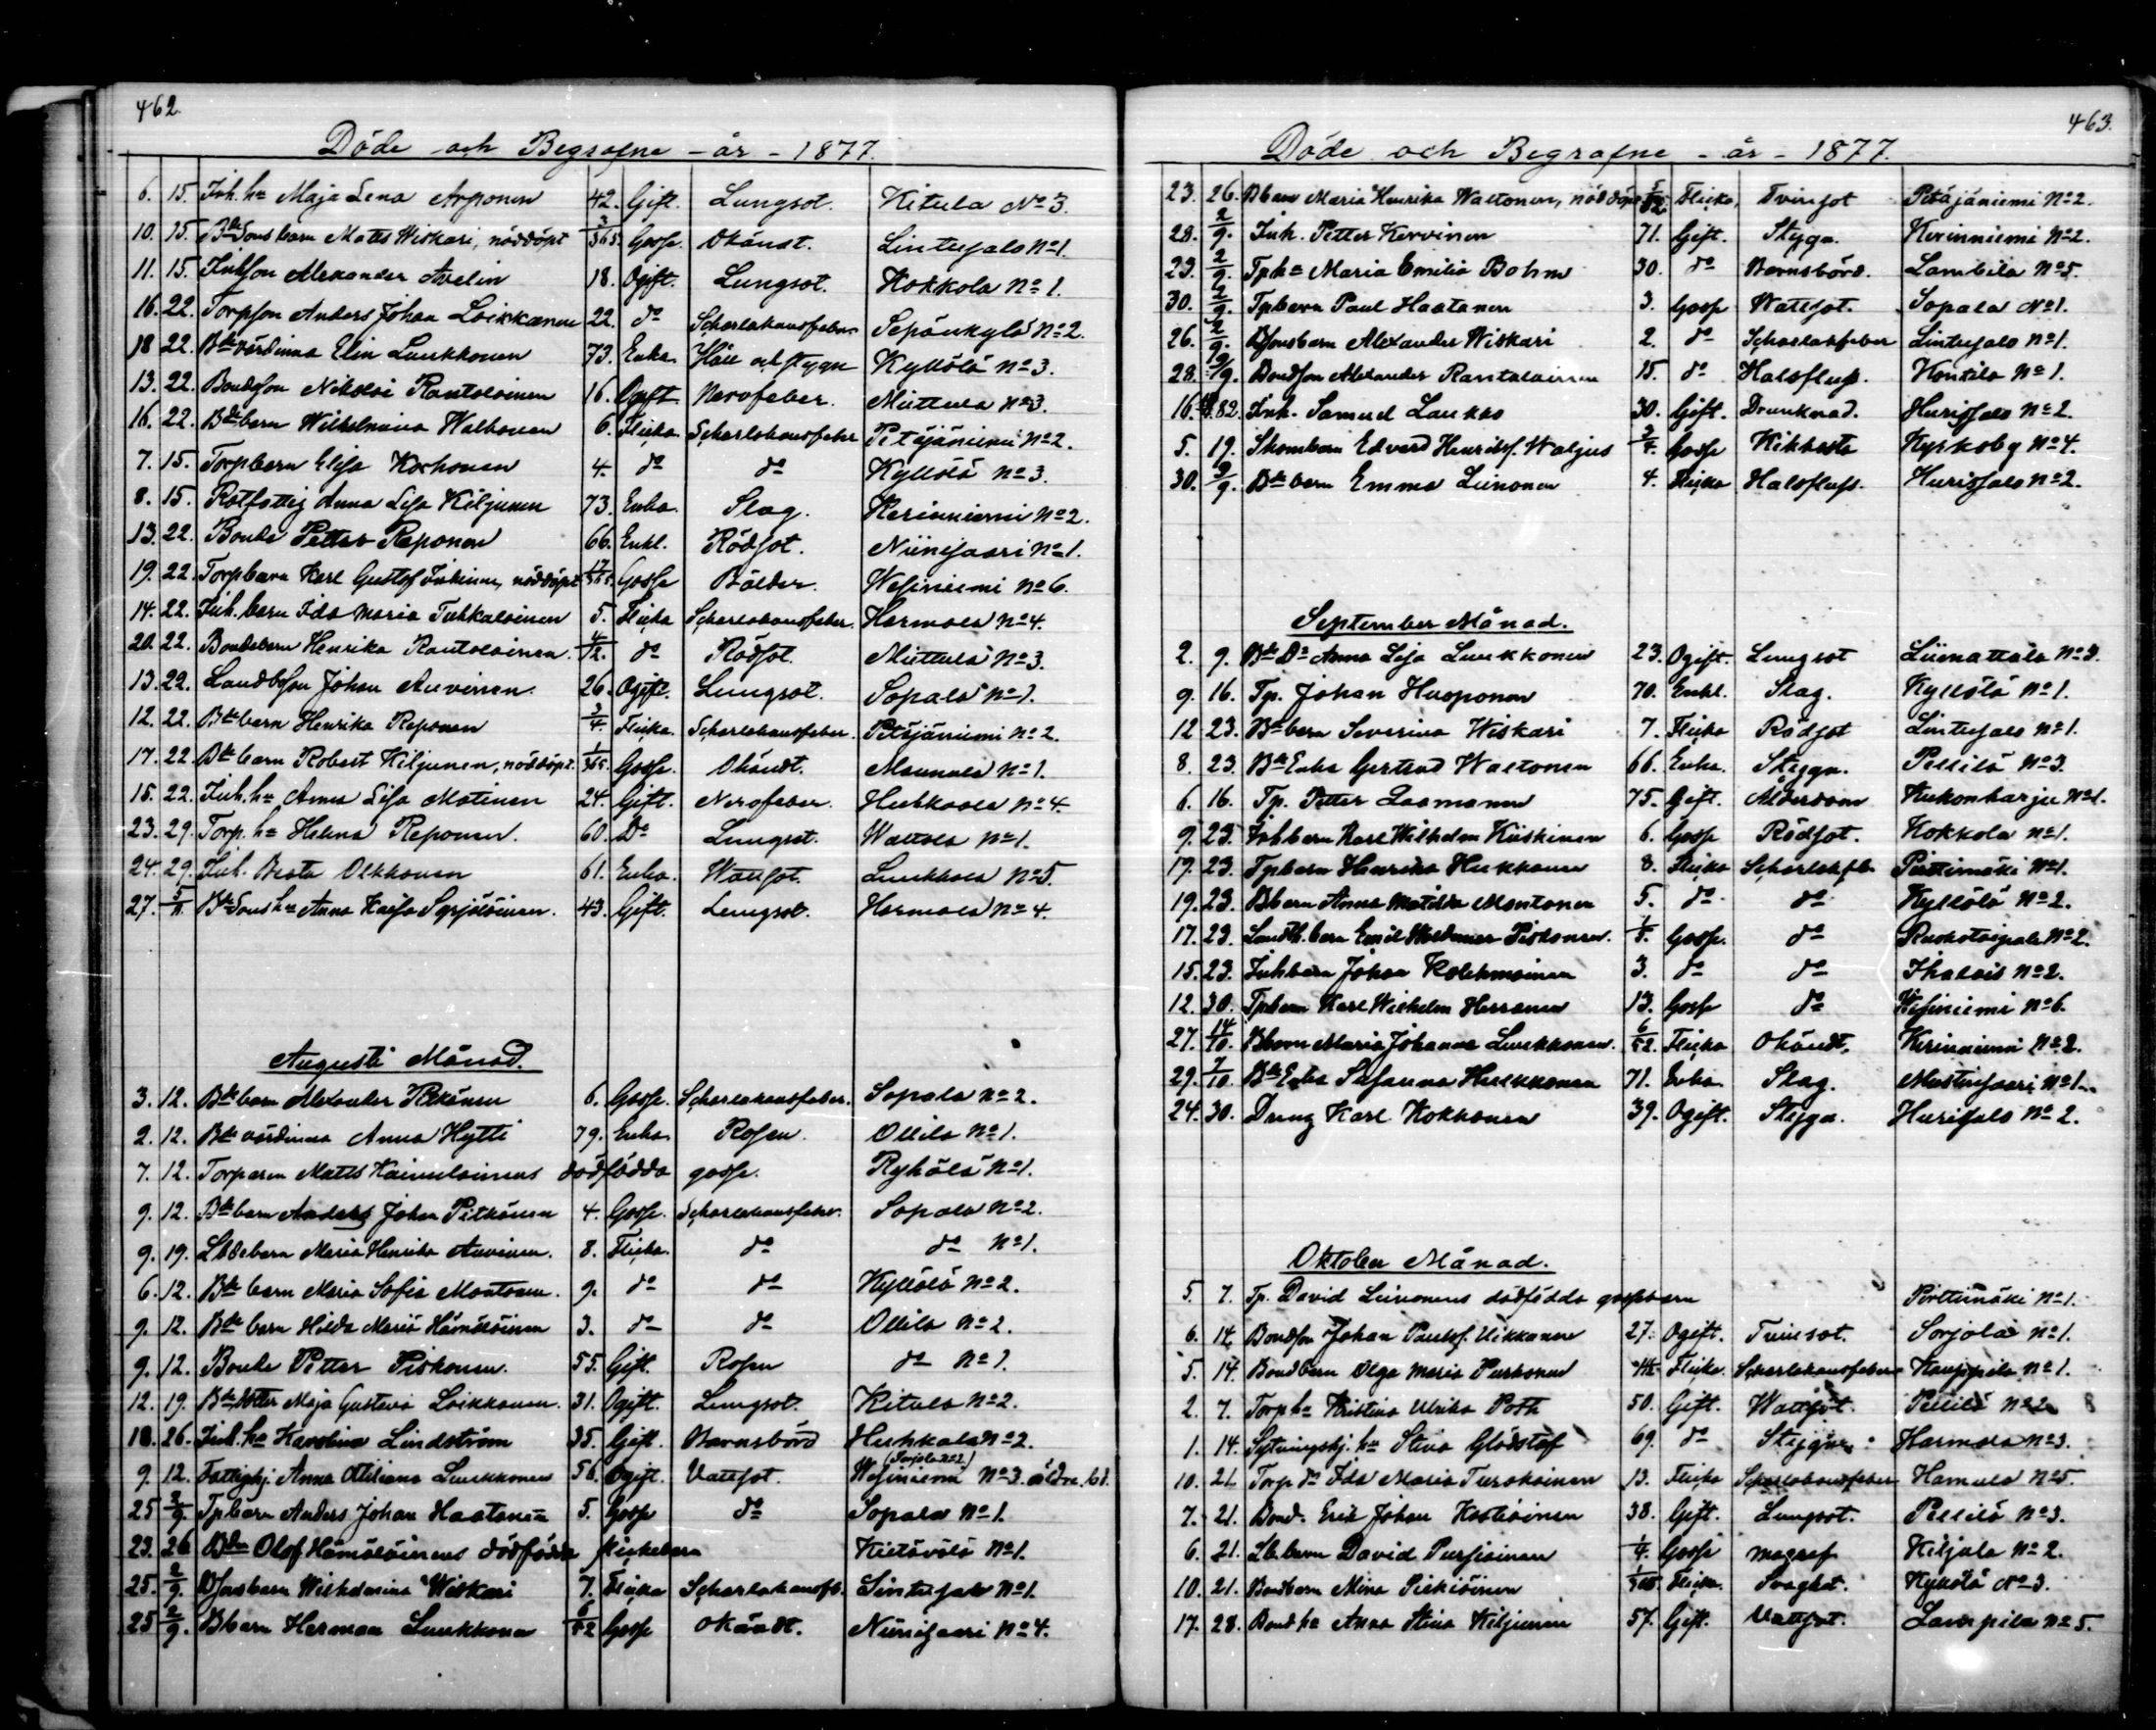 462.
Döde och Begrafne - år - 1877.
6. 15. Inh. hu Maja Lena Arponen 42. Gift. Lungsot. Kitula No 3.
10. 15. Bde Sons barn Matts Wiskari, nöddöpt 3/365 Gosse. Okändt. Lintusalo No 1.
11. 15. Inhson Alexander Avelin 18. Ogift. Lungsot. Kokkola No 1.
16. 22. Torpson Anders Johan Loikkanen 22. do Scharlakansfeber Sepänkylä No 2.
18 22. Bde värdinna Elin Luukkonen 73. Enka. Håll och stygn Kyllölä No 3.
13. 22. Bondeson Nikolai Rantalainen 16. Ogift. Nervfeber. Miittula No 3.
16. 22. Bde barn Wilhelmina Waltonen 6. Flicka Scharlakansfeber Petäjäniemi No 2.
7. 15. Torpbarn Elisa Korhonen 4. do do Kyllölä No 3.
8. 15. Rotfattig Anna Lisa Kiljunen 73. Enka. Slag. Kerinniemi No 2.
13. 22. Bonde Petter Reponen 66. Enkl. Rödsot. Niinisaari No 1.
19. 22. Torpbarn Karl Gustof Inkinen, nöddöpt 17/365 Gosse Bölder. Wesiniemi No 6.
14. 22. Inh. barn Ida Maria Tuhkalainen 5. Flicka Scharlakansfeber. Harmala No 4.
20. 22. Bondebarn Henrika Rantalainen. 4/12. do Rödsot. Miittula No 3.
13. 22. Landbson Johan Auvinen. 26. Ogift. Lungsot. Sopala No 1.
12. 22. Bde barn Henrika Reponen 3/4. Flicka. Scharlakansfeber. Petäjäniemi No 2.
17. 22. Bde barn Robert Kiljunen, nöddöpt. 1/365 Gosse. Okändt. Mannala No 1.
15. 22. Inh. hu Anna Lisa Matinen 24. Gift. Nervfeber. Huhkaala No 4.
23. 29. Torp. hu Helena Reponen. 60. Do Lungsot. Wattola No 1.
24. 29. Inh. Beata Olkkonen 61. Enka. Wattsot. Luukkola No 5.
27. 5/8. Bde Sons hu Anna Kaisa Syrjäläinen. 43. Gift. Lungsot. Harmala No 4.
Augusti Månad.
3. 12. Bde barn Alexander Pitkänen 6. Gosse. Scharlakansfeber. Sopala No 2.
2. 12. Bde värdinna Anna Hytti 79. Enka. Rosen. Ollila No 1.
7. 12. Torparen Matts Kainulainens dödfödda gosse. Ryhälä No 1.
9. 12. Bde barn Anders Johan Pitkänen 4. Gosse. Scharlakansfeber. Sopala No 2.
9. 19. Lbdebarn Maria Henrika Auvinen. 8. Flicka. do do No 1.
6. 12. Bde barn Maria Sofia Montonen. 9. do do Kyllölä No 2.
9. 12. Bde barn Hilda Maria Hämäläinen 3. do do Ollila No 2.
9. 12. Bonde Petter Piskonen. 55. Gift. Rosen do No 1.
12. 19. Bde dotter Maja Gustava Loikkanen. 31. Ogift. Lungsot. Kitula No 2.
18. 26. Inh. hu Karolina Lindström 35. Gift. Barnsbörd Huhkala No 2.
(Sorjola No 2)
9. 12. Fattighj. Anna Ottiliana Luukkonen 56. Ogift. Vattsot. Wesiniemi No 3.
25 2/9. Tpbarn Anders Johan Haatanen 5. Gosse do Sopala No 1.
23. 26 Bdn Olof Hämäläinens dödfödda flickebarn Kietävälä No 1.
25. 2/9. Bsonsbarn Wilhelmina Wiskari 7. Flicka Scharlakansfb. Lintusalo No 1.
25 2/9. Bbarn Herman Luukkonen 6/52 Gosse okändt. Niinisaari No 4.
463.
Döde och Begrafne - år - 1877.
23. 26. Bbarn Maria Henrika Waltonen, nöddöpt Flicka, Tvinsot Petäjäniemi No 2.
28. 2/9. Inh. Petter Kervinen 71. Gift. Stygn. Kerinniemi No 2.
23. 2/9. Tp hu Maria Emilia Bohm 30. do Barnsbörd. Lambila No 5.
30. 2/9. Tpbarn Paul Haatanen 3. Gosse Wattsot. Sopala No 1.
26. 2/9. Bsonsbarn Alexander Wiskari 2. do Scharlakfeber Lintusalo No 1.
28. Bondson Alexander Rantalainen 15. do Halsfluss. Kontila No 1.
16. Inh. Samuel Laukko 30. Gift. Drunknad. Hurissalo No 2.
5. 19. Skombarn Edvard Henrikss. Waljus Gosse Kikhosta Kyrkoby No 4.
30. 2/9. Bde barn Emma Leinonen 4. Flicka Halsfluss. Hurissalo No 2.
September Månad.
2. 9. Bde Dr Anna Lisa Luukkonen 23. Ogift. Lungsot Liimattala No 3.
9. 16. Tp. Johan Husponen 70. Enkl. Slag. Kyllölä No 1.
12 23. Bde barn Severina Wiskari 7. Flicka Rödsot Lintusalo No 1.
8. 23. Bde Enka Gertrud Waltonen 66. Enka. Stygn. Pellilä No 3.
6. 16. Tp. Petter Laamanen 75. Gift. Ålderdom Kukonharju No 1.
9. 23. Inhbarn Karl Wilhelm Kiiskinen 6. Gosse Rödsot. Kokkola No 1.
17. 23. Tpbarn Henrika Hukkanen 8. Flicka Scharlakfb. Pirttimäki No 1.
19. 23. Bbarn Anna Matilda Montonen 5. do do Kyllölä No 2.
17. 23. Landb. barn Emil Woldemar Piskonen. Gosse. do Ruokotaipale No 2.
15. 23. Inhbarn Johan Kolehmainen 3. do do Ihalais No 2.
12. 30. Tpbarn Karl Wilhelm Herranen 13. Gosse do Wesiniemi No 6.
27. 14/10. Bbarn Maria Johanna Luukkonen. 6/52. Flicka Okändt. Kerinniemi No 2.
29. 7/10. Bde Enka Susanna Hukkanen 71. Enka. Slag. Mustinsaari No 1.
24. 30. Dreng Karl Kokkonen 39. Ogift. Stygn. Hurissalo No 2.
Oktober Månad.
5. 7. Tp. David Leinonens dödfödda gossebarn Pirttimäki No 1.
6. 14. Bondson Johan Paulsf. Uikkanen 27. Ogift. Tvinsot. Sorjola No 1.
5. 14. Bondbarn Olga Maria Purhonen Flicka. Scharlakansfeber Kauppila No 1.
2. 7. Torp hu Kristina Ulrika Poth 50. Gift. Wattsot. Pellilä No 2
1. 14. Sytningshj. hu Stina Glödstaf 69. do Stygn. Harmala No 3.
10. 21. Torp dr Ida Maria Turakainen 13. Flicka Scharlakansfeber Hamula No 5.
7. 21. Bond. Erik Johan Hostiainen 38. Gift. Lungsot. Pellilä No 3.
6. 21. Lbbarn David Pursiainen 1/4. Gosse magref Kiljula No 2.
10. 21. Bondbarn Mina Pirkiäinen Flicka. Svaghet. Kyllölä No 3.
17. 28. Bond hu Anna Stina Kiljunen 57. Gift. Vattsot. Lampila No 5.